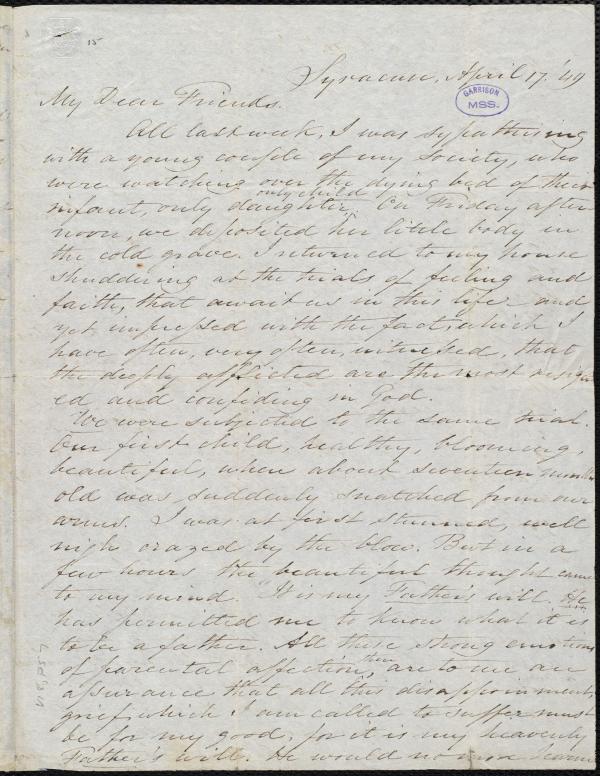 15
Syracuse, April 17. '49
GARRISON
MSS.
My Dear Friends.
All last week, I was sypathising
with a young couple of my Society, who
were watching over the dying bed of their
only child
infant, only daughter. On Friday after
noon, we deposited her little body in
the cold grave. I returned to my house
shuddering at the trials of feeling and
faith, that await us in this life and
yet impressed with the fact, which I
have often, very often, witnessed, that
the deeply afflicted are the most resign
ed and confiding in God.
We were subjected to the same trial.
Our first child, healthy, blooming,
beautiful, when about seventeen months
old was suddenly snatched from our
arms. I was at first stunned, well
nigh crazed by the blow. But in a
few hours the beautiful thought came
to my mind. It is my Father's will. He
has permitted me to know what it is
to be a father. All these strong emotions
of parental affection, are to me an
assurance that all this disappointment,
grief, which I am called to suffer must
be for my good, for it is my heavenly
Father's will. He would no more